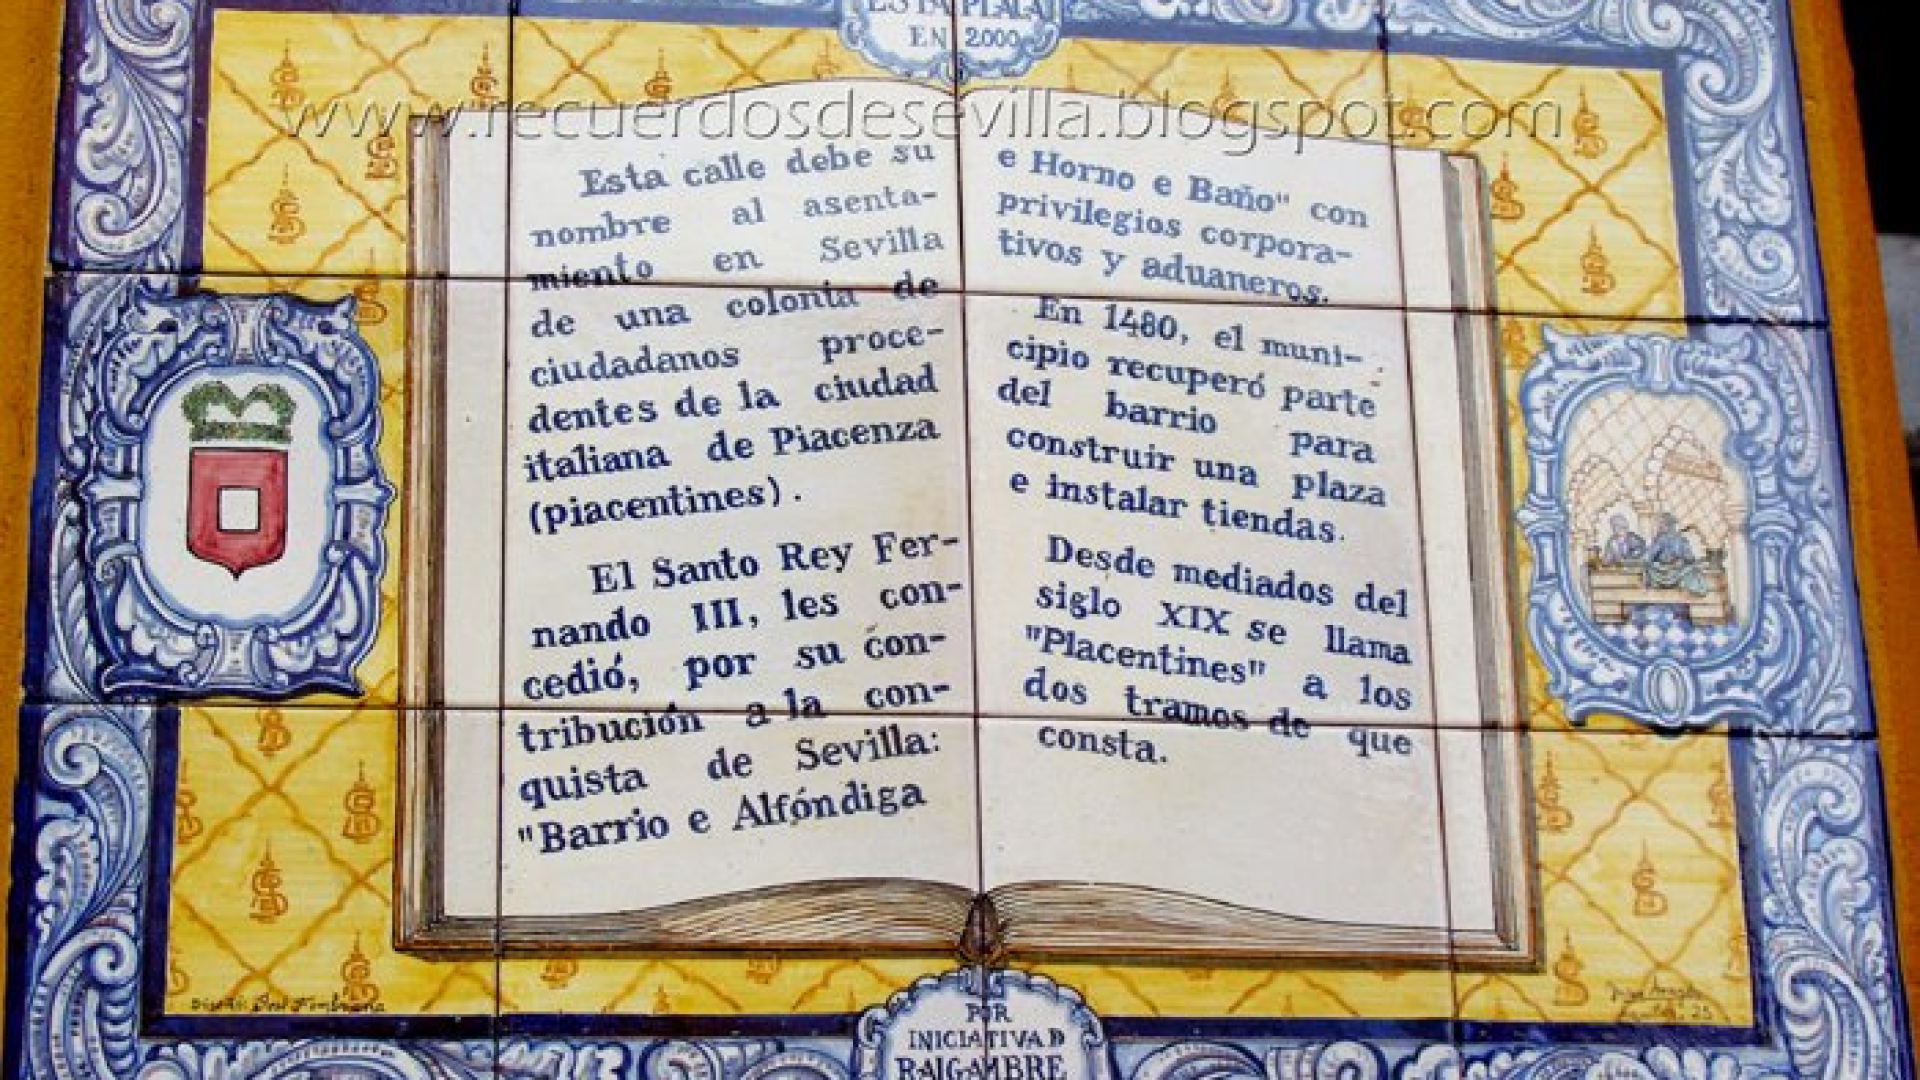 ESTA PLACA
EN 2000
www.recuerdosdesevilla.blogspot.com
Esta calle debe su
nombre al asenta-
miento en Sevilla
de una colonia de
ciudadanos proce-
dentes de la ciudad
italiana de Piacenza
(piacentines).
El Santo Rey Fer-
nando III, les con-
cedió, por su con-
tribución a la con-
quista de Sevilla:
"Barrio e Alfóndiga
e Horno e Baño" con
privilegios corpora-
tivos y aduaneros.
En 1480, el muni-
cipio recuperó parte
del barrio para
construir una plaza
e instalar tiendas.
Desde mediados del
siglo XIX se llama
"Placentines" a los
dos tramos de que
consta.
POR
INICIATIVA D
RAIGAMBRE